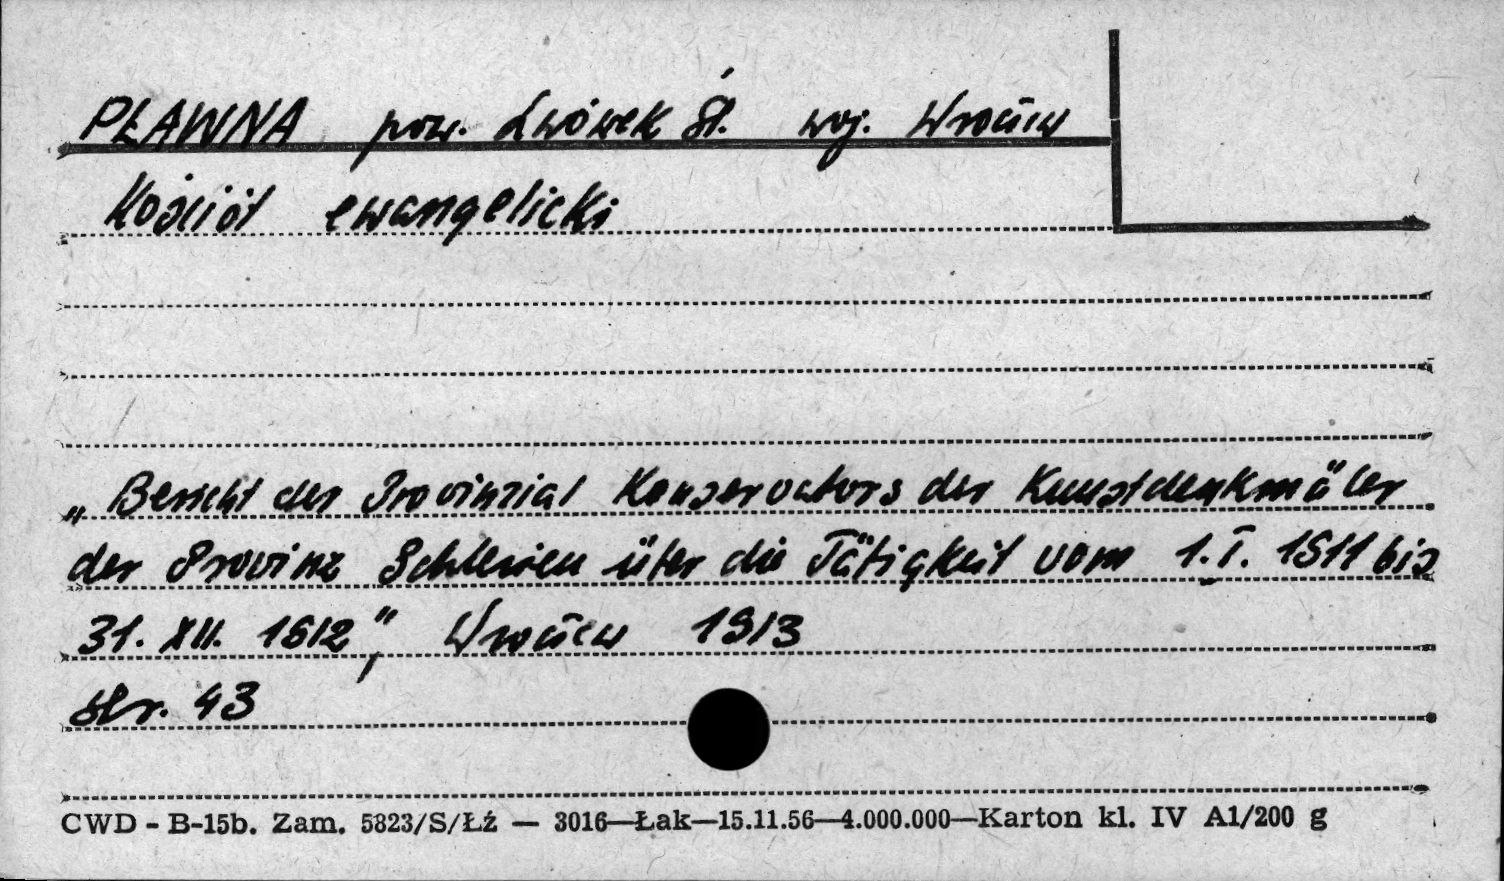 PŁAWNA pow. Lwówek Śl. woj. Wrocław
Kościół ewangelicki
„Bericht des Provinzial Konservators der Kunstdenkmäler
der Provinz Schlesien über die Tätigkeit vom 1.I. 1911 bis
31. XII. 1912”, Wrocław 1913
str. 43
CWD - B-15b. Zam. 5823/S/Łź — 3016—Łak—15.11.56—4.000.000—Karton kl. IV A1/200 g